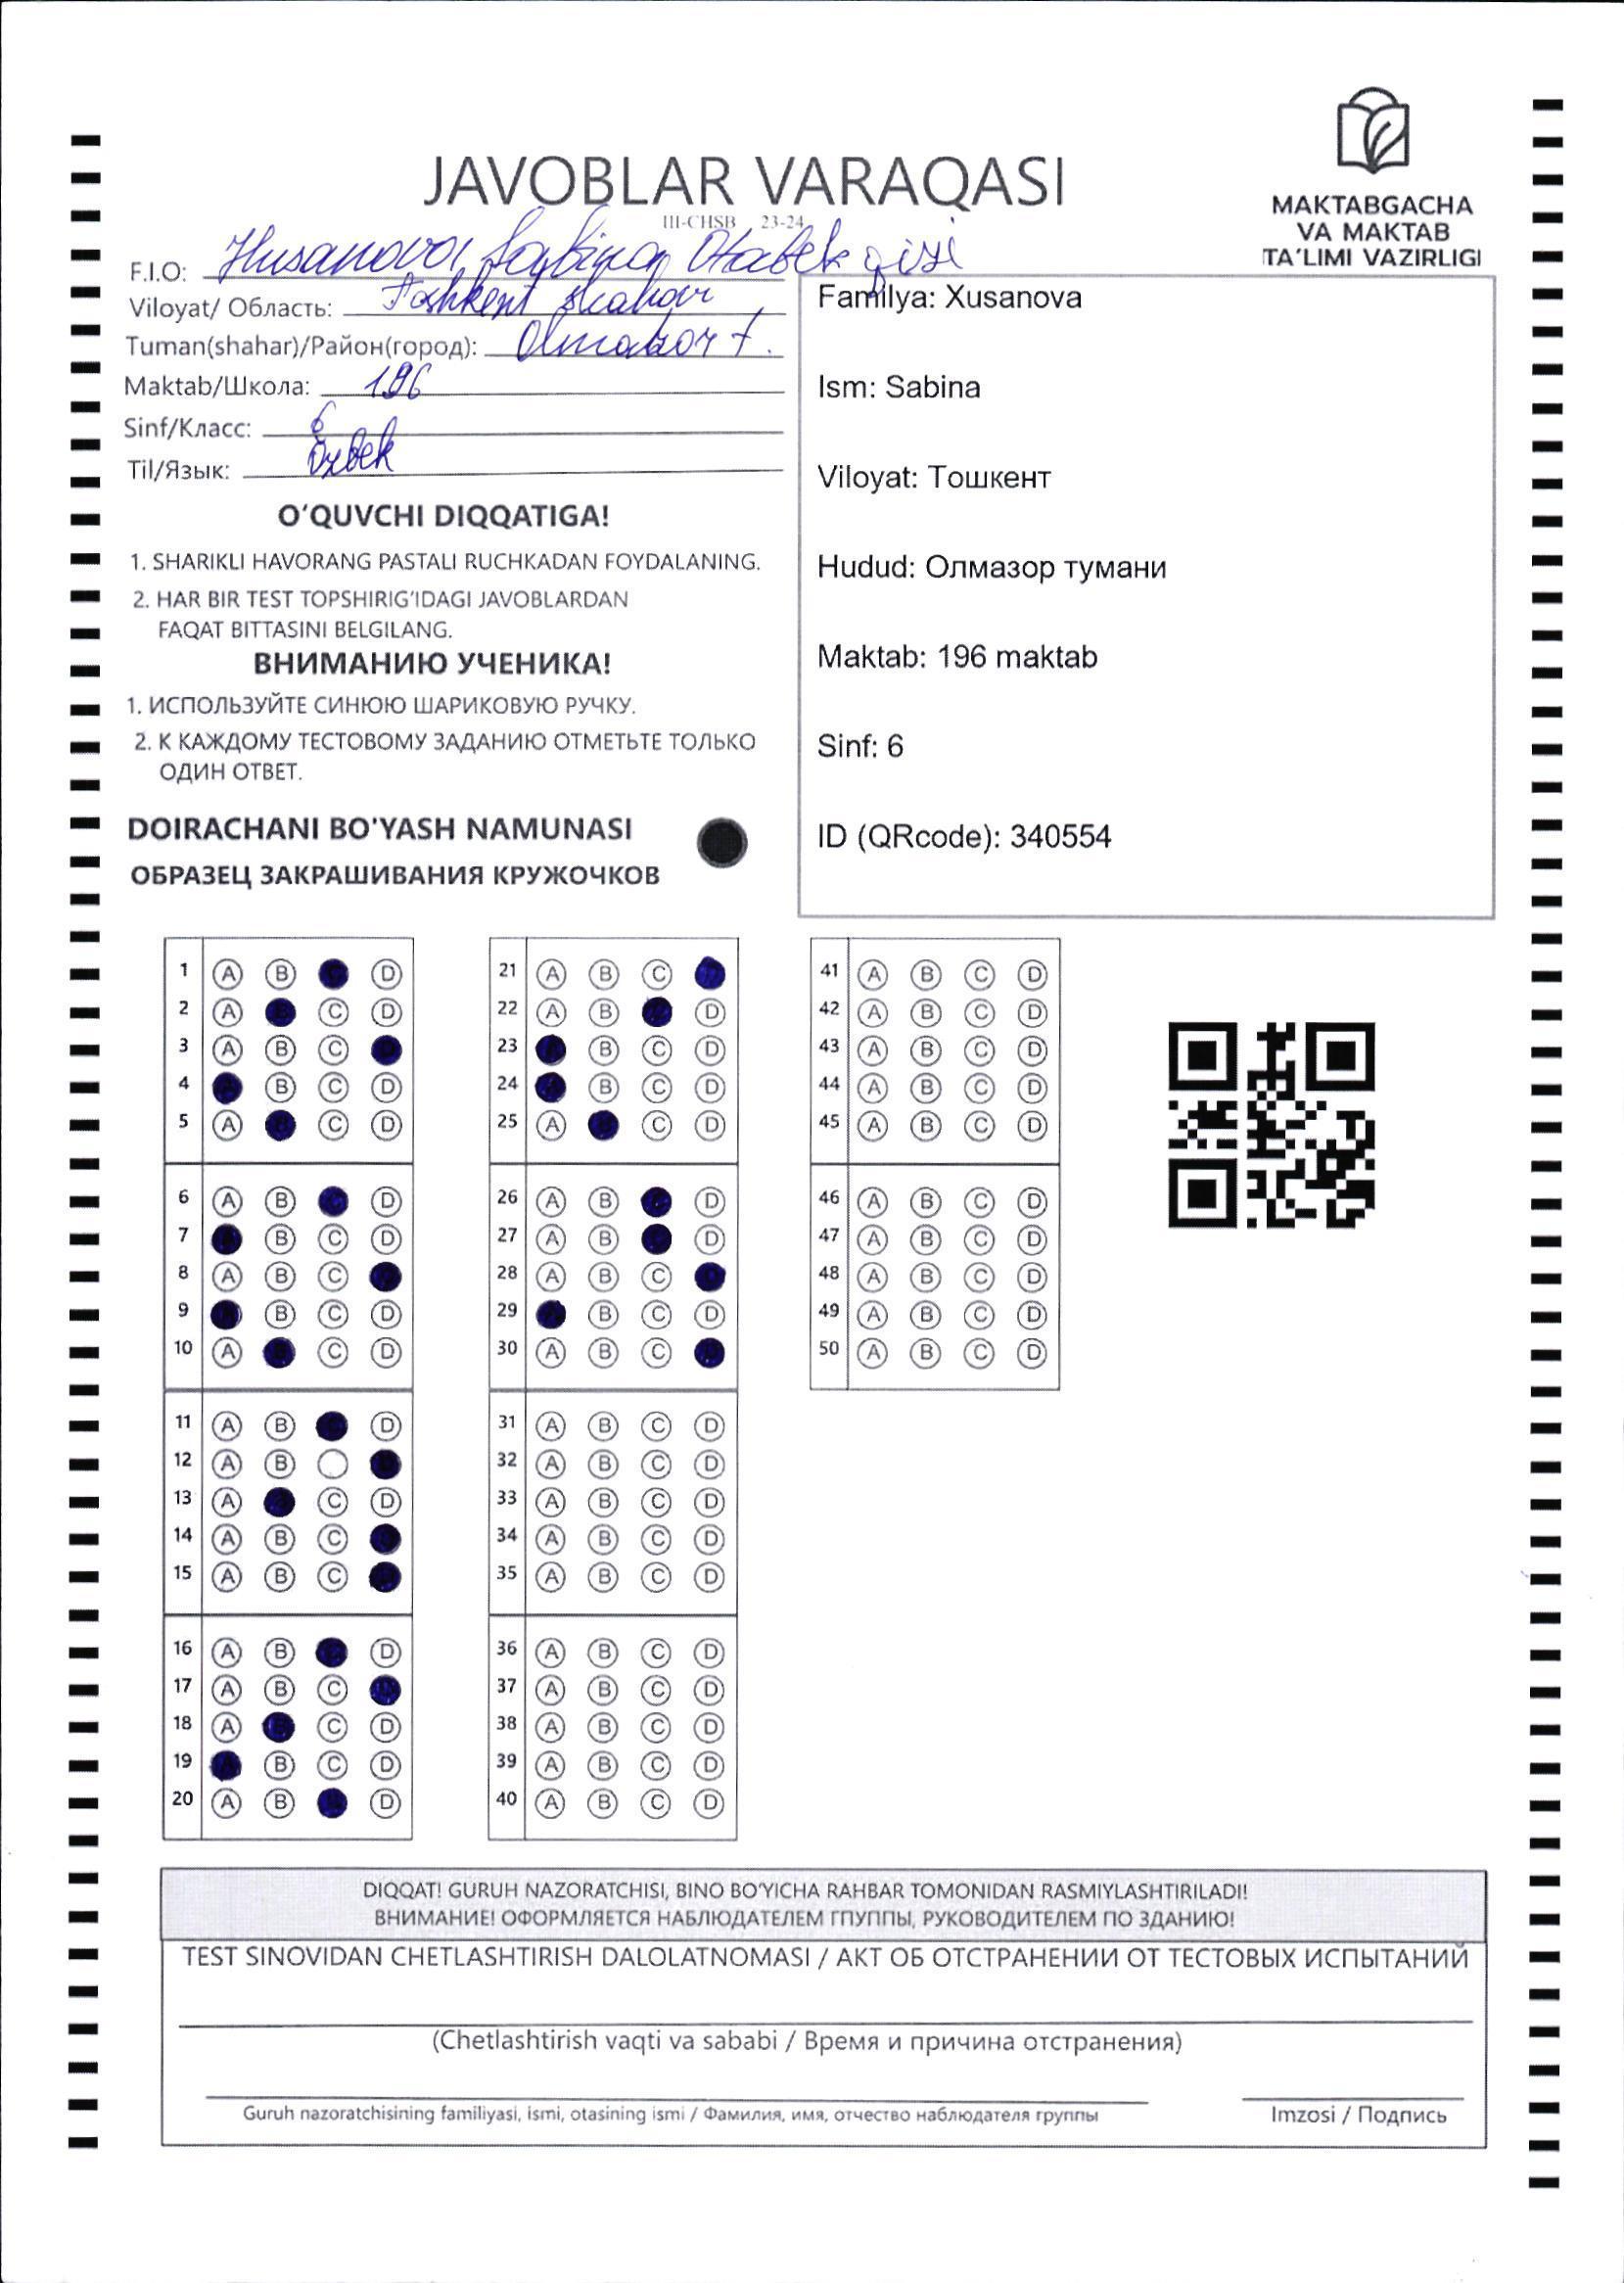 MAKTABGACHA
VA MAKTAB
TA'LIMI VAZIRLIGI
JAVOBLAR VARAQASI
III-CHSB 23-24
F.I.O: Husanova Sabina Otabek qizi
Viloyat/ Область: Toshkent shahar
Tuman(shahar)/Район(город): Olmazor t.
Maktab/Школа: 196
Sinf/Класс: 6
Til/Язык: Ozbek
Familya: Xusanova
Ism: Sabina
Viloyat: Тошкент
Hudud: Олмазор тумани
Maktab: 196 maktab
Sinf: 6
ID (QRcode): 340554
O'QUVCHI DIQQATIGA!
1. SHARIKLI HAVORANG PASTALI RUCHKADAN FOYDALANING.
2. HAR BIR TEST TOPSHIRIG'IDAGI JAVOBLARDAN
FAQAT BITTASINI BELGILANG.
ВНИМАНИЮ УЧЕНИКА!
1. ИСПОЛЬЗУЙТЕ СИНЮЮ ШАРИКОВУЮ РУЧКУ.
2. К КАЖДОМУ ТЕСТОВОМУ ЗАДАНИЮ ОТМЕТЬТЕ ТОЛЬКО
ОДИН ОТВЕТ.
DOIRACHANI BO'YASH NAMUNASI
ОБРАЗЕЦ ЗАКРАШИВАНИЯ КРУЖОЧКОВ
1 A B D
2 A C D
3 A B C
4 B C D
5 A C D
6 A B D
7 B C D
8 A B C
9 B C D
10 A C D
11 A B D
12 A B
13 A C D
14 A B C
15 A B C
16 A B D
17 A B C
18 A C D
19 B C D
20 A B D
21 A B C
22 A B D
23 B C D
24 B C D
25 A C D
26 A B D
27 A B D
28 A B C
29 B C D
30 A B C
31 A B C D
32 A B C D
33 A B C D
34 A B C D
35 A B C D
36 A B C D
37 A B C D
38 A B C D
39 A B C D
40 A B C D
41 A B C D
42 A B C D
43 A B C D
44 A B C D
45 A B C D
46 A B C D
47 A B C D
48 A B C D
49 A B C D
50 A B C D
DIQQAT! GURUH NAZORATCHISI, BINO BO'YICHA RAHBAR TOMONIDAN RASMIYLASHTIRILADI!
ВНИМАНИЕ! ОФОРМЛЯЕТСЯ НАБЛЮДАТЕЛЕМ ГПУППЫ, РУКОВОДИТЕЛЕМ ПО ЗДАНИЮ!
TEST SINOVIDAN CHETLASHTIRISH DALOLATNOMASI / АКТ ОБ ОТСТРАНЕНИИ ОТ ТЕСТОВЫХ ИСПЫТАНИЙ
(Chetlashtirish vaqti va sababi / Время и причина отстранения)
Guruh nazoratchisining familiyasi, ismi, otasining ismi / Фамилия, имя, отчество наблюдателя группы
Imzosi / Подпись